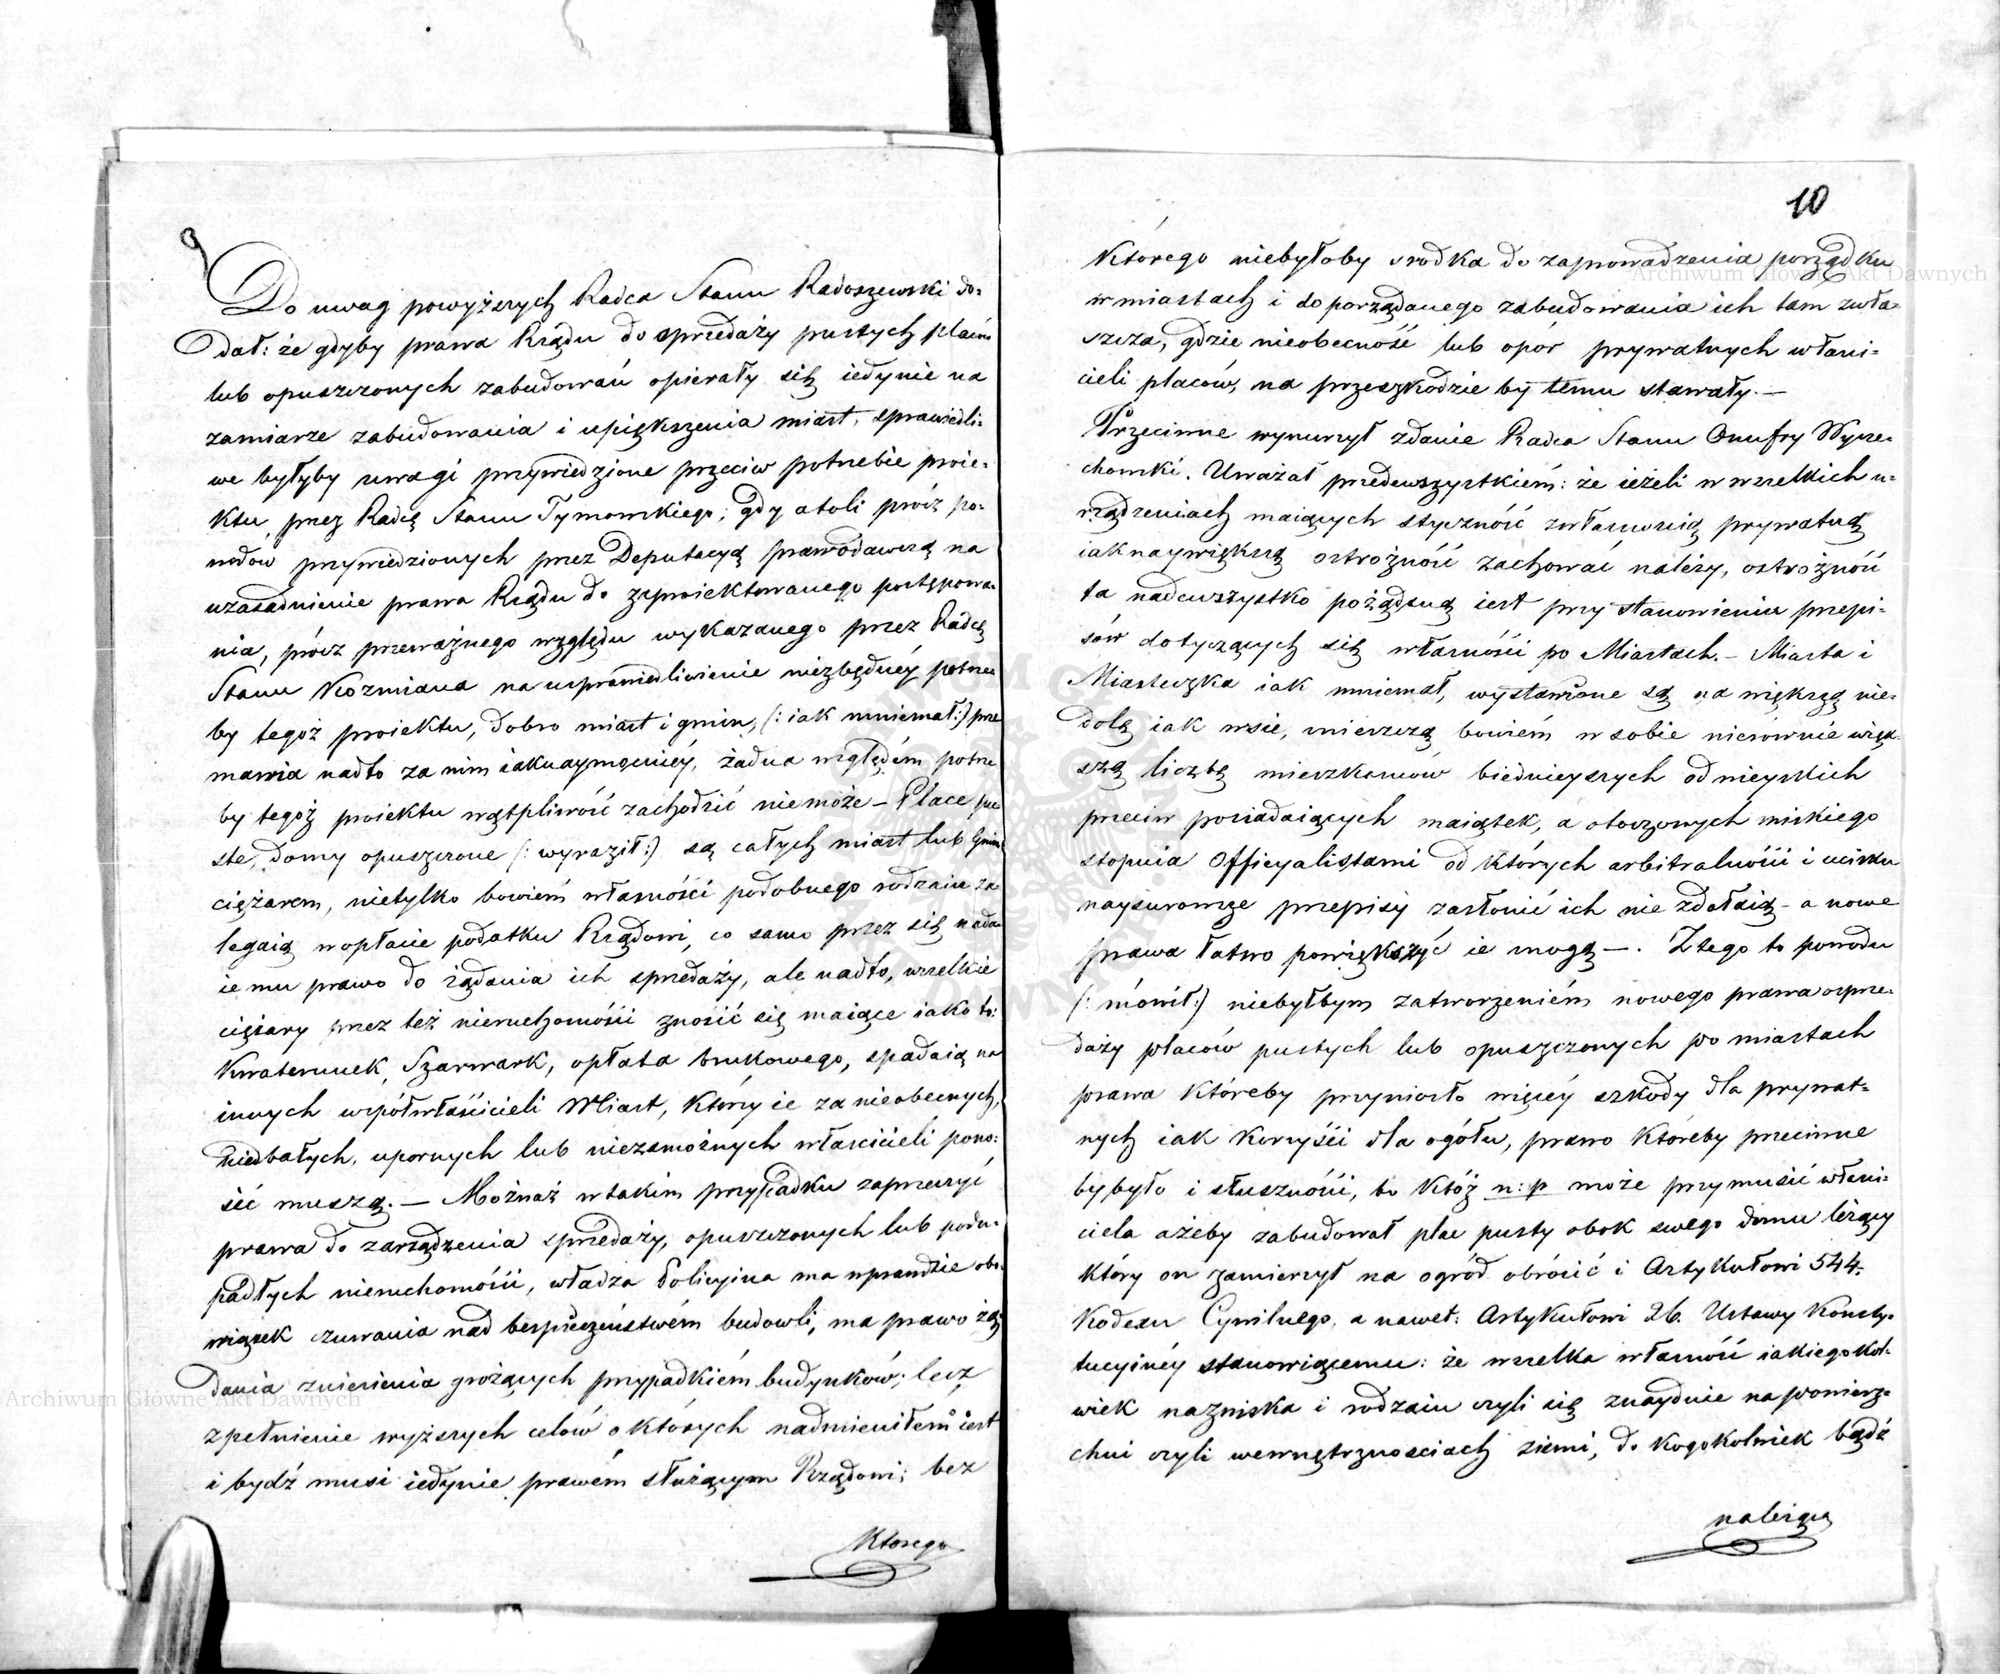 9
Do uwag powyższych Radca Stanu Radoszewski do-
dał: że gdyby prawa Rządu do sprzedaży pustych placów
lub opuszczonych zabudowań opierały się iedynie na
zamiarze zabudowania i upiększenia miast, sprawiedli-
we byłyby uwagi przywiedzione przeciw potrzebie proie-
ktu przez Radcę Stanu Tymowskiego; gdy atoli prócz po-
wodów przywiedzionych przez Deputacyą prawodawczą na
uzasadnienie prawa Rządu do zaproiektowanego postępowa-
nia, prócz przeważnego względu wykazanego przez Radcę
Stanu Koźmiana na usprawiedliwienie niezbędnéy potrze-
by tegoż proiektu, dobro miast i gmin, (: iak mniemał:) prze
mawia nadto za nim iaknaymocniéy, żadna względém potrze
by tegoż proiektu wątpliwość zachodzić nie może – Place pu
ste, domy opuszczone (: wyraził:) są całych miast lub Gmin
ciężarem, nietylko bowiem własności podobnego rodzaiu za
legaią w opłacie podatku Rządowi, co samo przez się nada
ie mu prawo do żądania ich sprzedaży, ale nadto, wszelkie
ciężary przez też nieruchomości znosić się maiące iako to:
Kwaterunek, Szarwark, opłata brukowego, spadaią na
innych współwłaścicieli Miast, którzy ie za nieobecnych,
niedbałych, upornych lub niezamożnych właścicieli pono-
sić muszą. — Możnaż w takim przypadku zaprzeczyć
prawa do zarządzenia sprzedaży, opuszczonych lub podu-
padłych nieruchomości, władza Policyina ma wprawdzie obo-
wiązek czuwania nad bespieczeństwém budowli, ma prawo żą
dania zniesienia grożących przypadkiém budynków; lecz
spełnienie wyższych celów o których nadmieniłem iest
i bydź musi iedynie prawém służącym Rządowi; bez
Ktorego
10
Którego niebyłoby srodka do zaprowadzenia porządku
w miastach i do porządanego zabudowania ich tam zwła-
szcza, gdzie nieobecność lub opór prywatnych właści-
cieli placów, na przeszkodzie by temu stawały. —
Przeciwne wynurzył zdanie Radca Stanu Onufry Wycze-
chowski. Uważał przedewszystkiém: że ieżeli w wszelkich u-
rządzeniach maiących styczność z własnością prywatną
iaknaywiększą ostrożność zachować należy, ostrożność
ta nadewszystko pożądaną iest przy stanowieniu przepi-
sów dotyczących się własności po Miastach. – Miasta i
Miasteczka iak mniemał, wystawione są na większą nie-
dolę iak wsie, mieszczą bowiém w sobie nierównie więk-
szą liczbę mieszkańców biednieyszych od wieyskich
przeciw posiadaiących maiątek, a otoczonych niskiego
stopnia Officyalistami od których arbitralności i ucisku
naysurowsze przepisy zasłonić ich nie zdołaią – a nowe
prawa łatwo powiększyć ie mogą —. Z tego to powodu
(: mówił:) niebyłbym za tworzeniém nowego prawa o sprze-
daży placów pustych lub opuszczonych po miastach
prawa któreby przyniosło więcéy szkody dla prywat-
nych iak korzyści dla ogółu, prawo któreby przeciwne
by było i słuszności, bo któż n: p może przymusić właści-
ciela ażeby zabudował plac pusty obok swego domu leżący
który on zamierzył na ogród obrócić i Artykułowi 544.
Kodexu Cywilnego, a nawet: Artykułowi 26. Ustawy Konsty-
tucyinéy stanowiącemu: że wszelka własność iakiegokol-
wiek nazwiska i rodzaiu czyli się znayduie na powierz-
chni czyli wewnętrznosciach ziemi, do kogokolwiek bądź
należąca
Archiwum Główne Akt Dawnych
Archiwum Główne Akt Dawnych